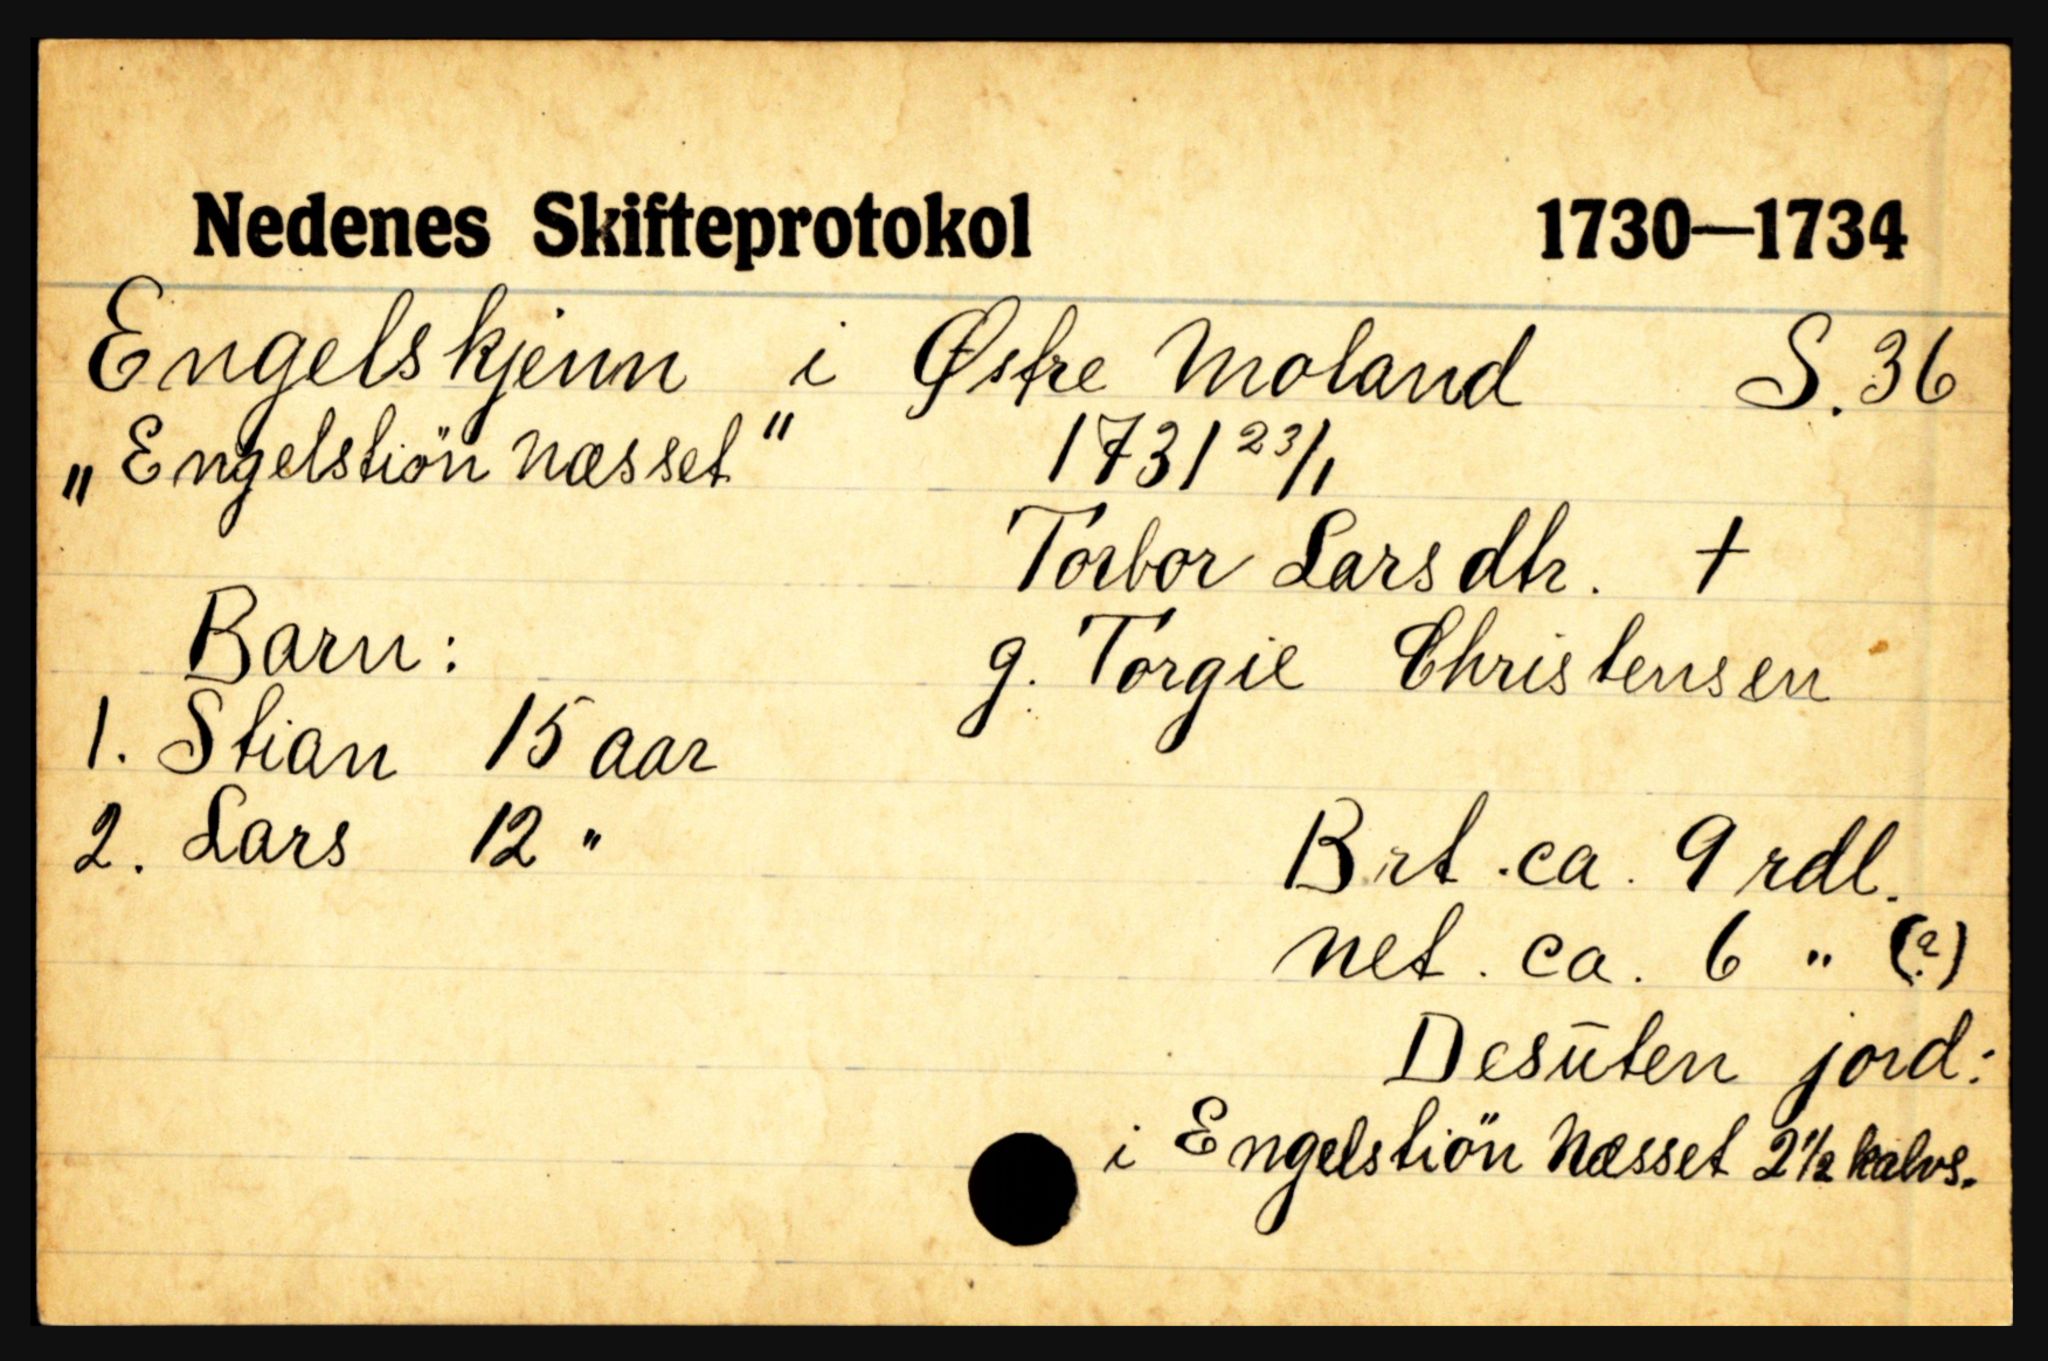 Nedenes Skifteprotokol 1730—1734
Engelskjenn i Østre Moland S. 36
„Engelstiön Næsset" 1731 23/1
Torbor Larsdtr. †
Barn: g. Torgie Christensen
1. Stian 15 aar
2. Lars 12 "
Brt. ca. 9 rdl.
net. ca. 6 " (?)
Desūten jord:
i Engelstiön Næsset 2 1/2 kalvs.